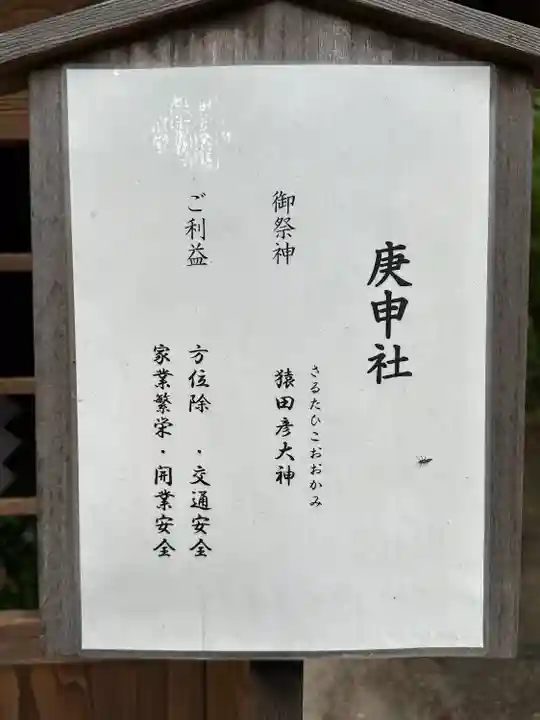 庚申社
御祭神 猿田彦大神
さるたひこおおかみ
ご利益 方位除・交通安全
家業繁栄・開業安全